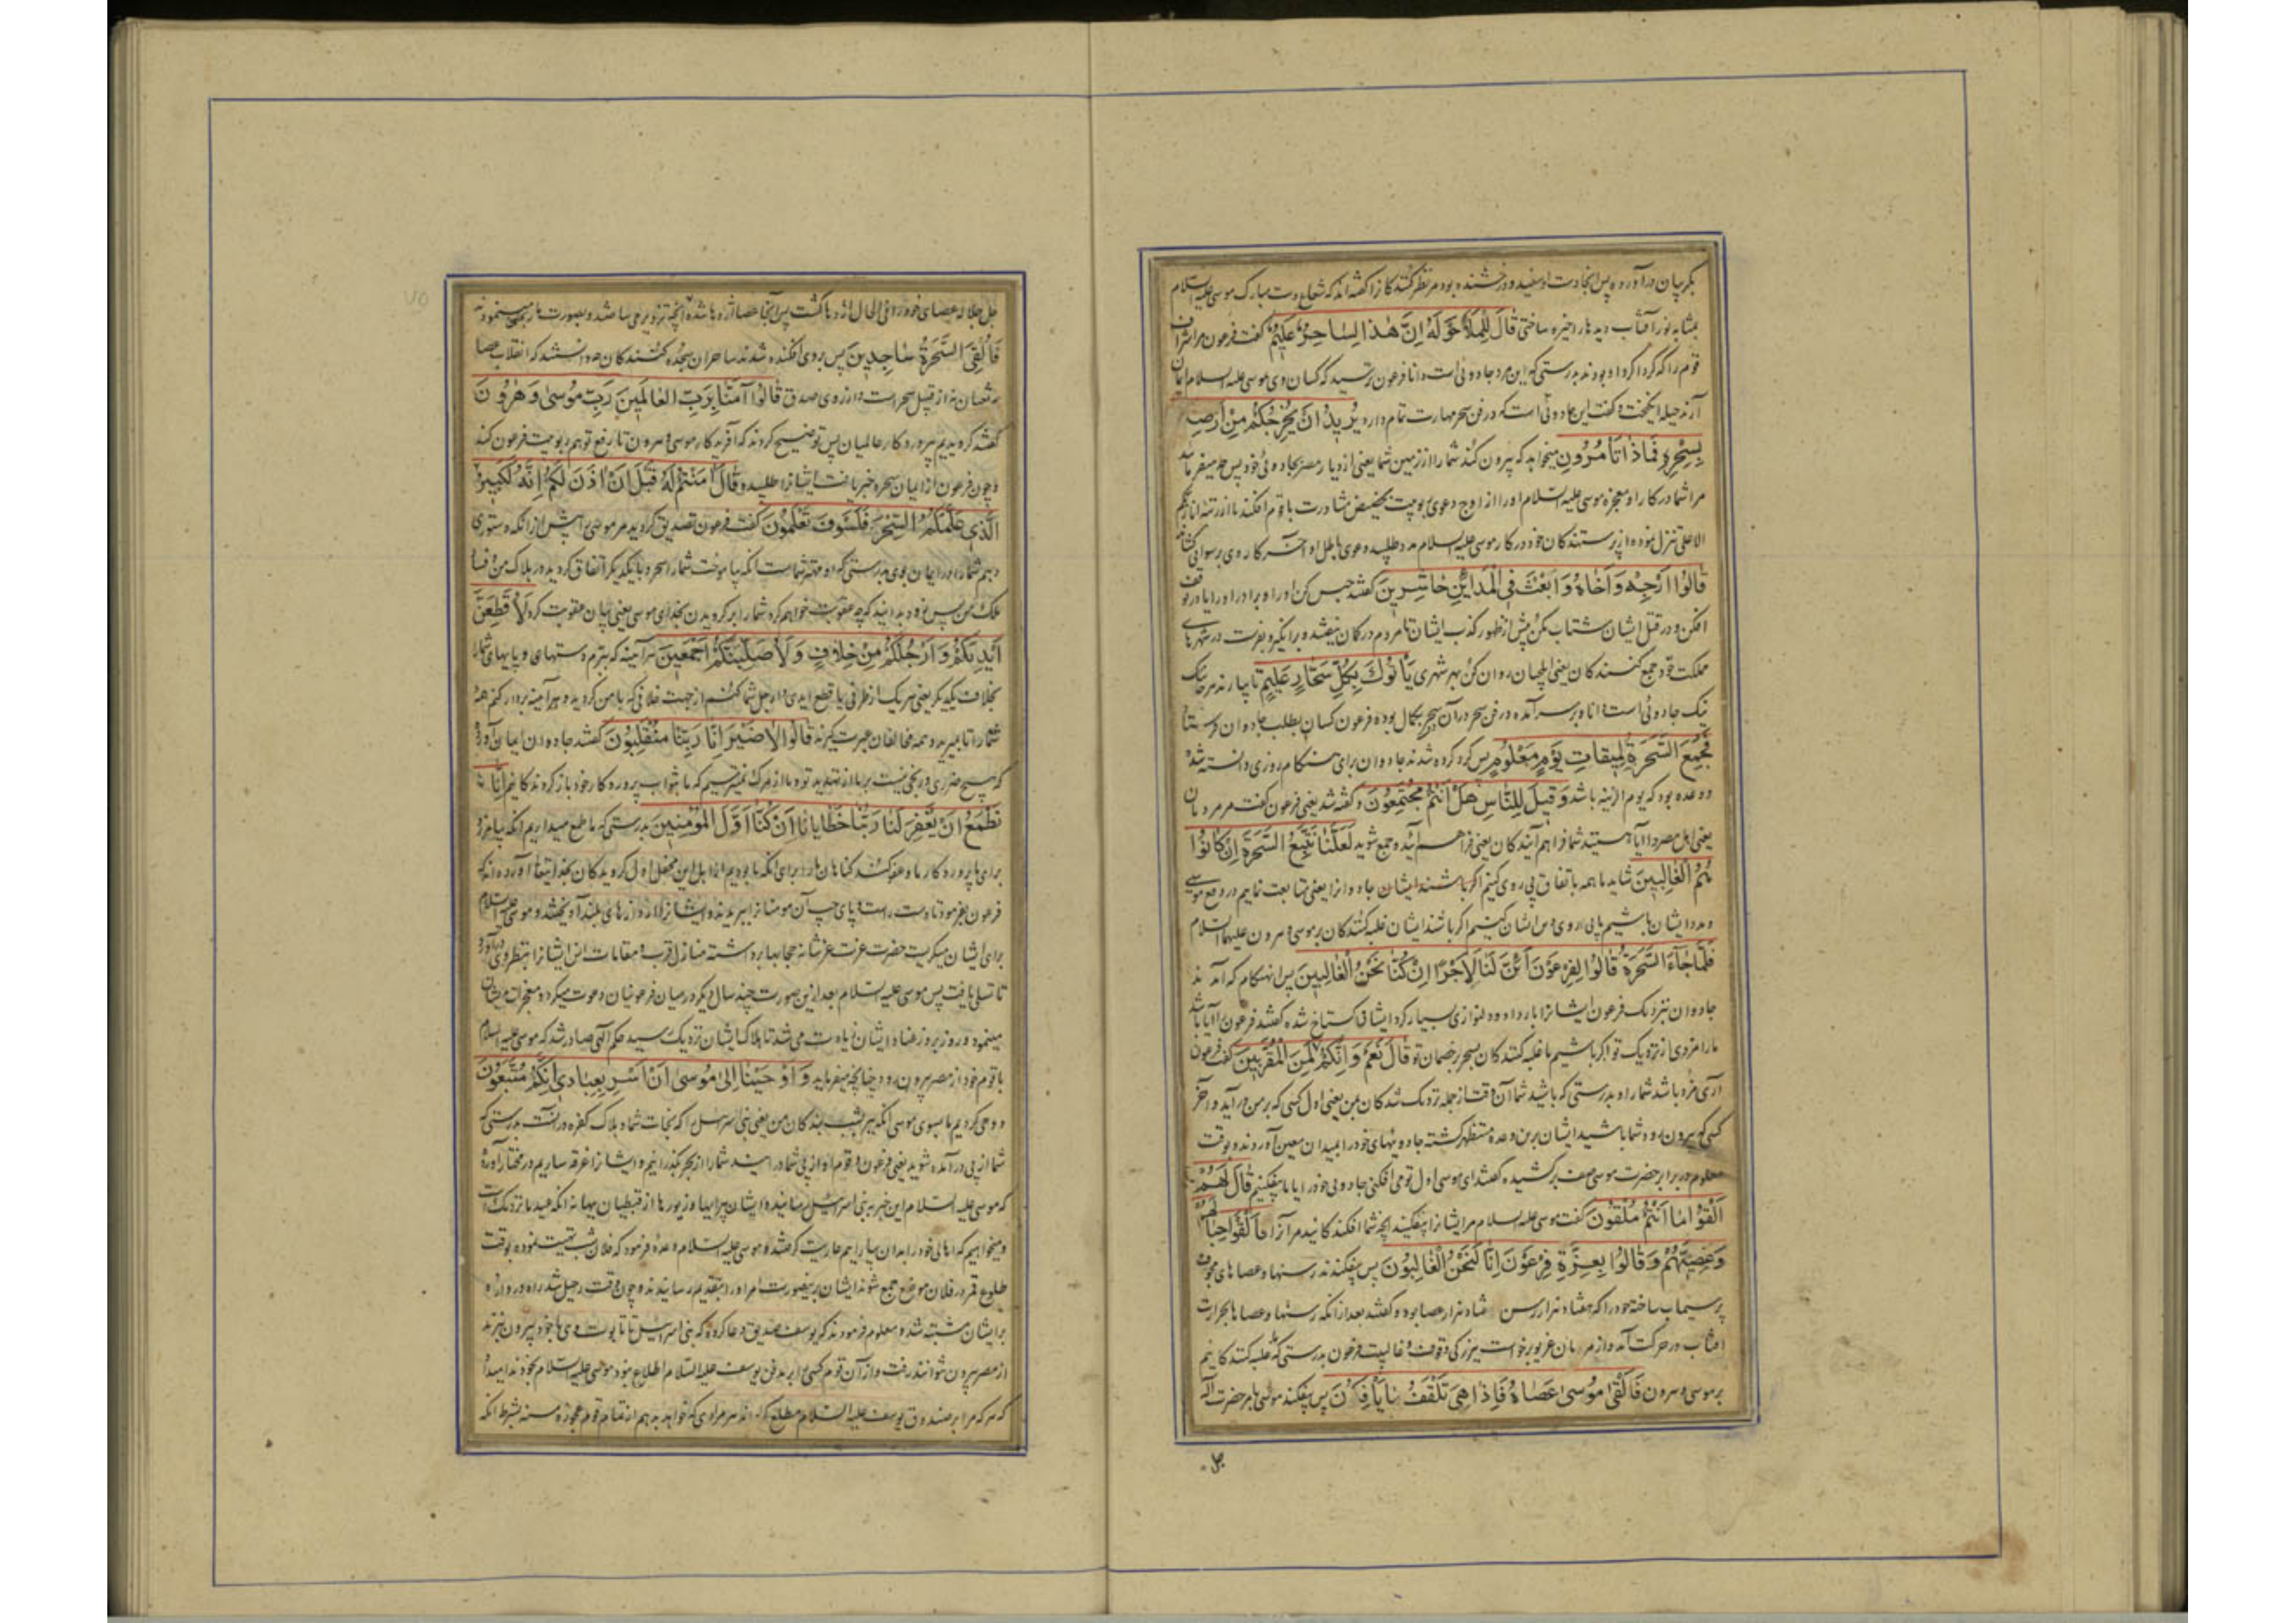 بگریبان درآورده پس آنجا دست او سفید و درخشنده بود مر نظر کنندگانرا گفته‌اند که شعاع دست مبارک موسی علیه السلام
بمثابه نور آفتاب دیدها را خیره ساختی قَالَ لِلْمَلَأِ حَوْلَهُ إِنَّ هٰذَا لَسَاحِرٌ عَلِيمٌ گفت فرعون مر اشراف
قوم را که گرداگرد او بودند بدرستی که این مرد جادوئی است دانا فرعون ترسید که کسان وی بموسی علیه السلام ایمان
آرند حیله انگیخت و گفت این جادوئی است که در فن سحر مهارت تمام دارد يُرِيدُ أَنْ يُخْرِجَكُمْ مِنْ أَرْضِ
بِسِحْرِهِ فَمَاذَا تَأْمُرُونَ میخواهد که بیرون کند شما را از زمین شما یعنی از دیار مصر بجادوئی خود پس چه میفرمائ
مرا شما در کار او معجزه موسی علیه السلام او را از اوج دعوی ربوبیت بحضیض مشاورت با قوم افکند تا از رتبه انا ربکم
الاعلی تنزل نموده از پرستندگان خود در کار موسی علیه السلام مدد طلبید و دعوی باطل او آخر کار روی برسوائی
قَالُوا أَرْجِهْ وَأَخَاهُ وَابْعَثْ فِي الْمَدَائِنِ حَاشِرِينَ گفتند حبس کن او را و برادر او را یا در توقف
افکن و در قتل ایشان شتاب مکن پیش از ظهور کذب ایشان تا مردم در گمان نیفتند و برانگیز و بفرست در شهرهای
مملکت خود جمع کنندگان یعنی ایلچیان روان کن بهر شهری يَأْتُوكَ بِكُلِّ سَحَّارٍ عَلِيمٍ تا بیارند هر جا که
نیک جادوئی است دانا و بر سر آمده در فن سحر و در آن سحر بکمال بوده فرعون کسان بطلب جادوان فرستاد
فَجُمِعَ السَّحَرَةُ لِمِيقَاتِ يَوْمٍ مَعْلُومٍ پس گرد کرده شدند جادوان برای هنگام روزی دانسته شده
و وعده بود که یوم الزینه باشد وَقِيلَ لِلنَّاسِ هَلْ أَنْتُمْ مُجْتَمِعُونَ و گفته شد یعنی فرعون گفت مر مردمان
یعنی اهل مصر را آیا هستید شما فراهم آیندگان یعنی فراهم آئید و جمع شوید لَعَلَّنَا نَتَّبِعُ السَّحَرَةَ إِنْ كَانُوا
هُمُ الْغَالِبِينَ شاید ما همه باتفاق پی روی کنیم اگر باشند ایشان جادوانرا یعنی متابعت نمایم در دفع موسی
و مدد ایشان باشیم یا پی روی دین ایشان کنیم اگر باشند ایشان غلبه کنندگان بر موسی و هرون علیهما السلام
فَلَمَّا جَاءَ السَّحَرَةُ قَالُوا لِفِرْعَوْنَ أَئِنَّ لَنَا لَأَجْرًا إِنْ كُنَّا نَحْنُ الْغَالِبِينَ پس آنهنگام که آمدند
جادوان بنزدیک فرعون ایشانرا بار داد و دلنوازی بسیار کرد ایشان گستاخ شده گفتند فرعون را آیا باشد
ما را مزدی از نزدیک تو اگر باشیم ما غلبه کنندگان بسحر بر خصمان تو قَالَ نَعَمْ وَإِنَّكُمْ لَمِنَ الْمُقَرَّبِينَ گفت فرعون
آری مزد باشد شما را و بدرستی که باشید شما آن وقت از جمله نزدیک شدگان بمن یعنی اول کسی که بر من درآید و آخر
کسی که بیرون رود شما باشید ایشان برین وعده مستظهر گشته جادوئیهای خود را بمیدان معین آوردند و بوقت
معلوم در برابر حضرت موسی صف بر کشیده گفتند ای موسی اول تو می افکنی جادوئی خود را یا ما بیفکنیم قَالَ لَهُمْ
أَلْقُوا مَا أَنْتُمْ مُلْقُونَ گفت موسی علیه السلام مر ایشانرا بیفکنید آنچه شما افکندگانید مر آنرا فَأَلْقَوْا حِبَالَهُمْ
وَعِصِيَّهُمْ وَقَالُوا بِعِزَّةِ فِرْعَوْنَ إِنَّا لَنَحْنُ الْغَالِبُونَ پس بیفکندند رسنها و عصاهای مجوف
پر سیماب ساخته خود را که هفتاد هزار رسن هفتاد هزار عصا بود و گفتند بعد از آنکه رسنها و عصاها بحرارت
آفتاب در حرکت آمد و از مردمان غریو برخواست ببزرگی و قوت و غالبیت فرعون بدرستی که غلبه کنندگانیم
بر موسی و هرون فَأَلْقَى مُوسَى عَصَاهُ فَإِذَا هِيَ تَلْقَفُ مَا يَأْفِكُونَ پس بیفکند موسی بامر حضرت اله
جل
جل جلاله عصای خود را فی الحال اژدها گشت پس آنجا عصا اژدها شده آنچه تزویر می ساختند و بصورت مار می نمودند
فَأُلْقِيَ السَّحَرَةُ سَاجِدِينَ پس بروی افکنده شدند ساحران سجده کنندگان چه دانستند که انقلاب عصا
بثعبان نه از قبیل سحر است و از روی صدق قَالُوا آمَنَّا بِرَبِّ الْعَالَمِينَ رَبِّ مُوسَى وَهَرُونَ
گفتند گرویدیم بپروردگار عالمیان پس توضیح کردند که آفریدگار موسی و هرون تا رفع توهم ربوبیت فرعون کند
و چون فرعون از ایمان سحره خبر یافت ایشانرا طلبیده قَالَ آمَنْتُمْ لَهُ قَبْلَ أَنْ آذَنَ لَكُمْ إِنَّهُ لَكَبِيرُكُمُ
الَّذِي عَلَّمَكُمُ السِّحْرَ فَلَسَوْفَ تَعْلَمُونَ گفت فرعون تصدیق کردید مر موسی را پیش از آنکه دستوری
دهم شما را در ایمان بوی بدرستی که او مهتر شماست آنکه بیاموخت شما را سحر و با یکدیگر اتفاق کردید در هلاک من و فساد
ملک من پس زود بدانید که چه عقوبت خواهم کرد شما را بر گرویدن بخدای موسی یعنی بیان عقوبت کرد لَأُقَطِّعَنَّ
أَيْدِيَكُمْ وَأَرْجُلَكُمْ مِنْ خِلَافٍ وَلَأُصَلِّبَنَّكُمْ أَجْمَعِينَ هرآینه که ببرم دستهای و پایهای شما را
بخلاف یکدیگر یعنی هر یک از طرفی یا قطع ایدی و ارجل شما کنم از جهت خلافی که با من کردید و هرآینه بردار کنم همه
شما را تا بمیرید و همه مخالفان عبرت گیرند قَالُوا لَا ضَيْرَ إِنَّا إِلَى رَبِّنَا مُنْقَلِبُونَ گفتند جادوان ایمان آورده
که هیچ ضرری و رنجی نیست بر ما از تهدید تو و ما از مرگ نمیترسیم که ما بثواب پروردگار خود بازگردندگانیم إِنَّا
نَطْمَعُ أَنْ يَغْفِرَ لَنَا رَبُّنَا خَطَايَانَا أَنْ كُنَّا أَوَّلَ الْمُؤْمِنِينَ بدرستی که ما طمع میداریم آنکه بیامرزد
برای ما پروردگار ما و عفو کند گناهان ما را برای آنکه ما بودیم از اهل این محفل اول گرویدگان بخدایتعالی آورده‌اند که
فرعون بفرمود تا دست راست و پای چپ آن مومنانرا ببریدند و ایشانرا از دارهای بلند آویختند و موسی علیه السلام
برای ایشان میگریست حضرت عزت عز شانه حجابها برداشته منازل قرب و مقامات انس ایشانرا بنظر وی درآورد
تا تسلی یافت پس موسی علیه السلام بعد ازین صورت چند سال دیگر در میان فرعونیان دعوت میکرد و معجزات بدیشان
مینمود و روز بروز عناد ایشان زیادت می شد تا هلاک ایشان نزدیک رسید حکم الهی صادر شد که موسی علیه السلام
با قوم خود از مصر بیرون رود چنانچه میفرماید وَأَوْحَيْنَا إِلَى مُوسَى أَنْ أَسْرِ بِعِبَادِي إِنَّكُمْ مُتَّبَعُونَ
و وحی کردیم ما بسوی موسی آنکه ببر بشب بندگان من یعنی بنی اسرائیل را که نجات شما و هلاک کفره در آنست بدرستی که
شما از پی درآمده شوید یعنی فرعون و قوم او از پی شما درآیند شما را از بحر بگذرانیم و ایشانرا غرقه سازیم در مختار آورده
که موسی علیه السلام این خبر به بنی اسرائیل رسانیده ایشان پیرایها و زیورها از قبطیان ببهانه آنکه عید ما نزدیک است
و میخواهیم که اهالی خود را بدان بیاراییم عاریت گرفتند و موسی علیه السلام وعده فرمود که فلان شب تهیت نموده بوقت
طلوع قمر در فلان موضع جمع شوند ایشان برینصورت امر او را بتقدیم رسانیدند و چون وقت رحیل شد راه دروازه
برایشان مشتبه شد و معلوم فرمودند که یوسف صدیق دعا کرده که بنی اسرائیل تا تابوت وی با خود بیرون نبرند
از مصر بیرون نتوانند رفت و از آن قوم کسی را بر مدفن یوسف علیه السلام اطلاع نبود موسی علیه السلام بخود ندا میداد
که هر که مرا بر صندوق یوسف علیه السلام مطلع گرداند هر مرادی که خواهد بدهم از تمام قوم عجوزه مسنه بشرط آنکه